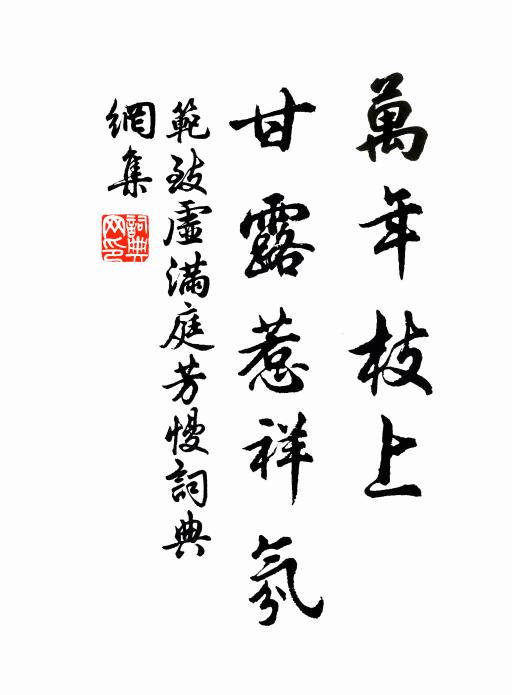 萬年枝上
甘露惹祥氛
範致虛滿庭芳慢詞典
網集
詞典
网印